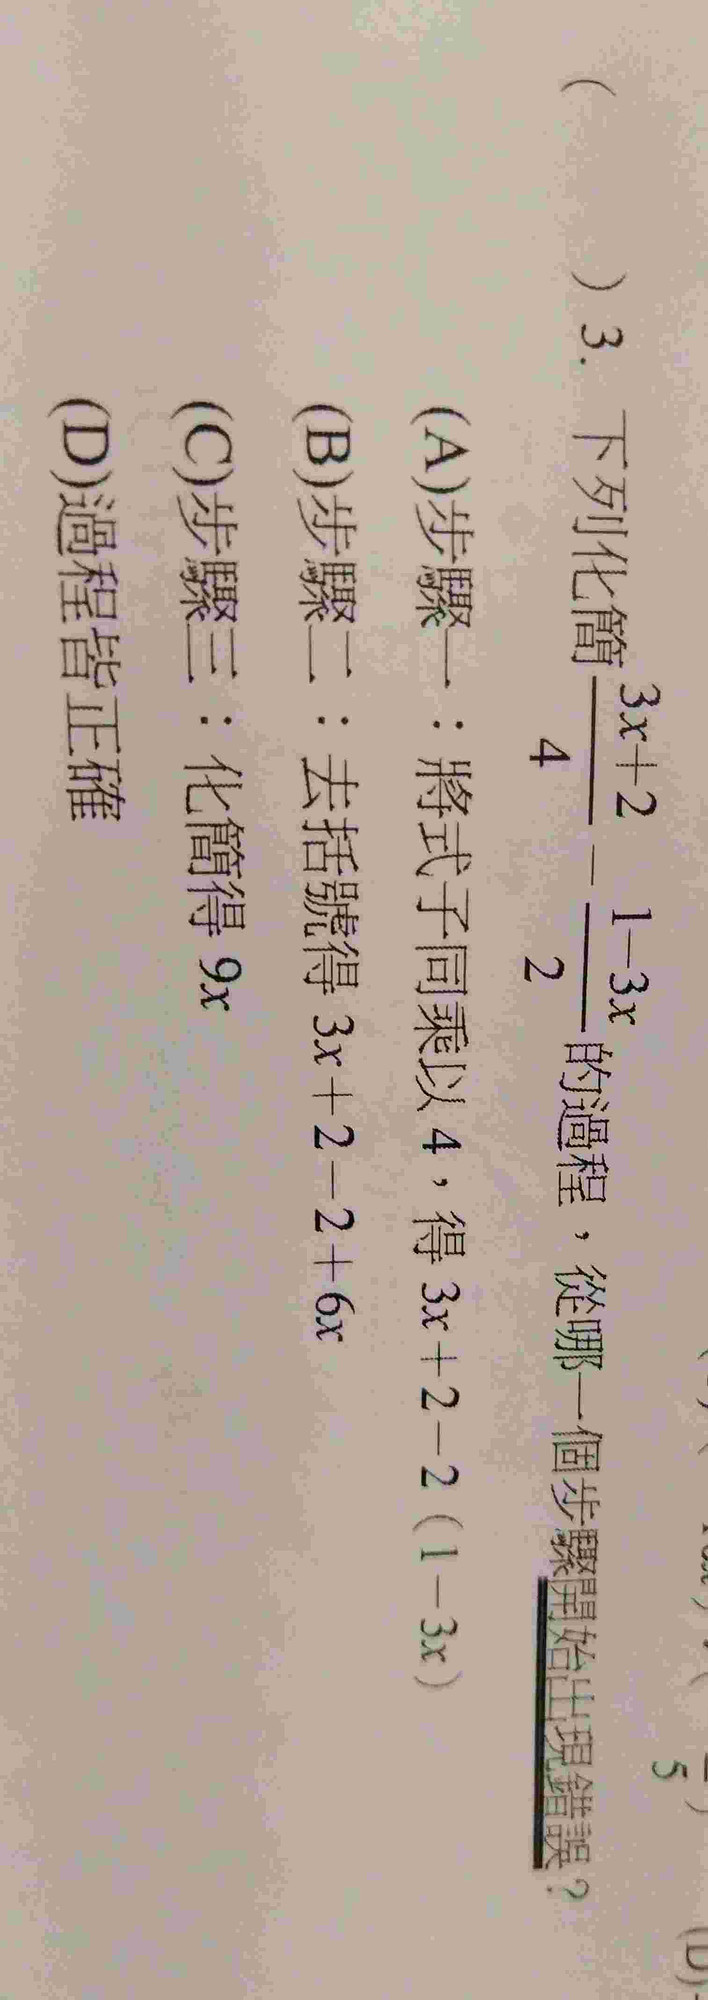 ( ) 3. 下列化簡 \frac{3x+2}{4} − \frac{1−3x}{2} 的過程，從哪一個步驟開始出現錯誤？
(A)步驟一：將式子同乘以 4，得 3x＋2－2（1－3x）
(B)步驟二：去括號得 3x＋2－2＋6x
(C)步驟三：化簡得 9x
(D)過程皆正確